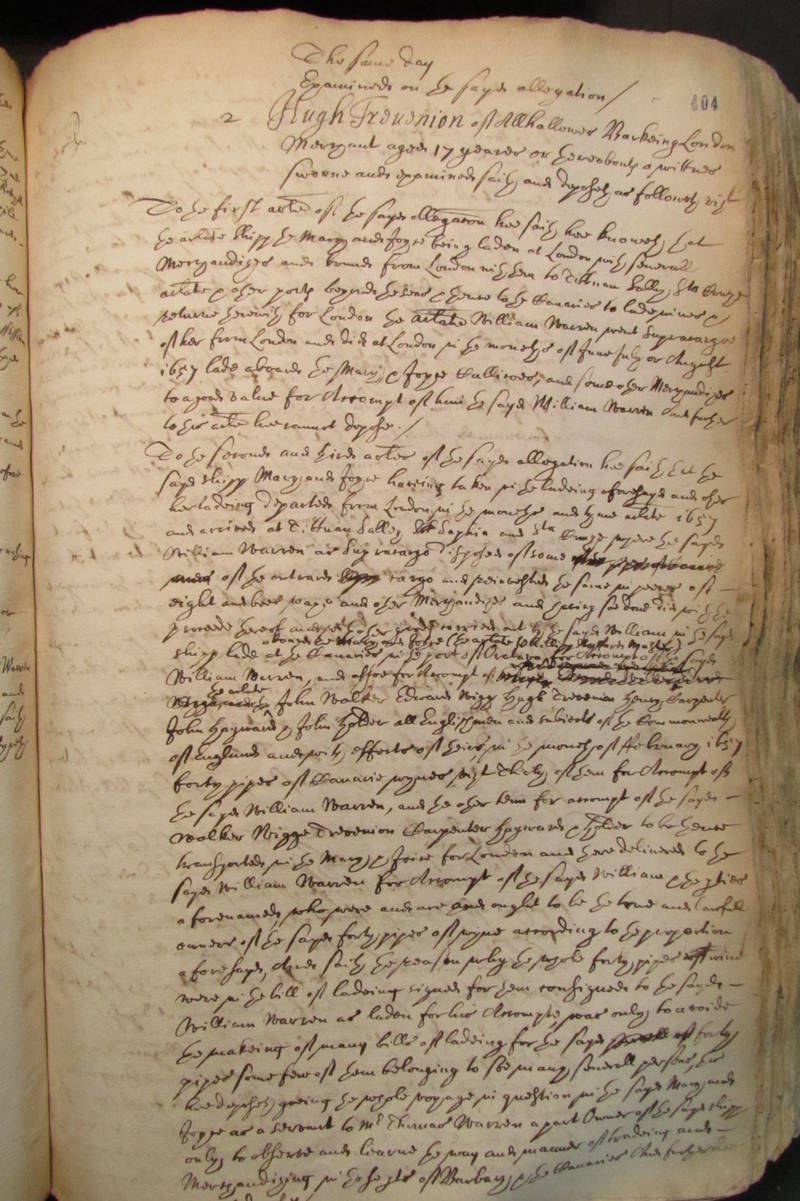 The same day
Examined on the sayd allegation /
404
2 Hugh Trevenion of Allhallowes Barkeing London
Merchant aged 17 yeares or thereabouts a wittnes
sworne and examined saith and deposeth as followeth vizt
To the first article of the sayd allegation hee saith hee knoweth that
the arlate shipp the Mary and Joyce being laden at London with severall
Merchandizes and bound from London with them to Tittuan Salley Sta Cruze
arlate & other ports beyond the seas & thence to the Canaries to lade wines &
returne therewith for London the arlate William Warren went Supracargoe
of her from London and did at London in the moneths of June July or August
1657 lade aboard the Mary & Joyce Callicoes, and some other Merchandizes
to a good value for Accompt of him the sayd William Warren And further
to this arlte hee cannot depose. /
To the second and third articles of the sayd allegation hee saith that the
sayd shipp Mary and Joyce haveing taken in the ladeing aforesayd and other
her ladeing departed from London in the moneths and tyme arlate 1657
and arrived at Tittuan Salley Saphia and Sta Cruze where the sayd
William Warren as Supracargo disposed of some
of the outward cargo and reinvested the same in peeces of
eight and bees waxe and other Merchandizes and having soe done did with the
proceede thereof and with other goods carried out by the sayd William in the sayd
aboard the Mary and Joyce (the arlate Master)
shipp lade at the Canaries in the port of Oratava for Accompt of the sayd
William Warren, and alsoe for Accompt of
the arlate John Walker Edward Wigg Hugh Trevenion Henry Carpenter
John Hayward & John Holder all Englishmen and subiects of the Commonwealth
of England and with effects of theirs, in the moneth of February 1657
forty pipes of Canarie wynes, vizt Thirty of them for Accompt of
the sayd William Warren, and the other tenn for accompt of the sayd
Walker Wigge Trevenion Carpenter Hayward & Holder to be thence
transported in the Mary & Joice for London and there delivered to the
sayd William Warren for Accompt of the sayd William & the parties
aforenamed, who were and are and ought to be the true and lawfull
owners of the sayd forty pipes of wyne according to the proportion
aforesayd, And saith the reason why the whole forty pipes of wine
were in the bill of ladeing signed for them consigned to the sayd
William Warren as laden for his Accompte, was only to avoide
the makeing of many bills of ladeing for the sayd forty
pipes some few of them belonging to soe many severall persons, this
hee deposeth, goeing the whole voyage in question in the sayd Mary and
Joyce as a servant to Mr Thomas Warren a part Owner of the sayd shipp
only to observe and learne the way and manner of tradeing and
Merchandizing in those parts of Barbary & the Canaries And further